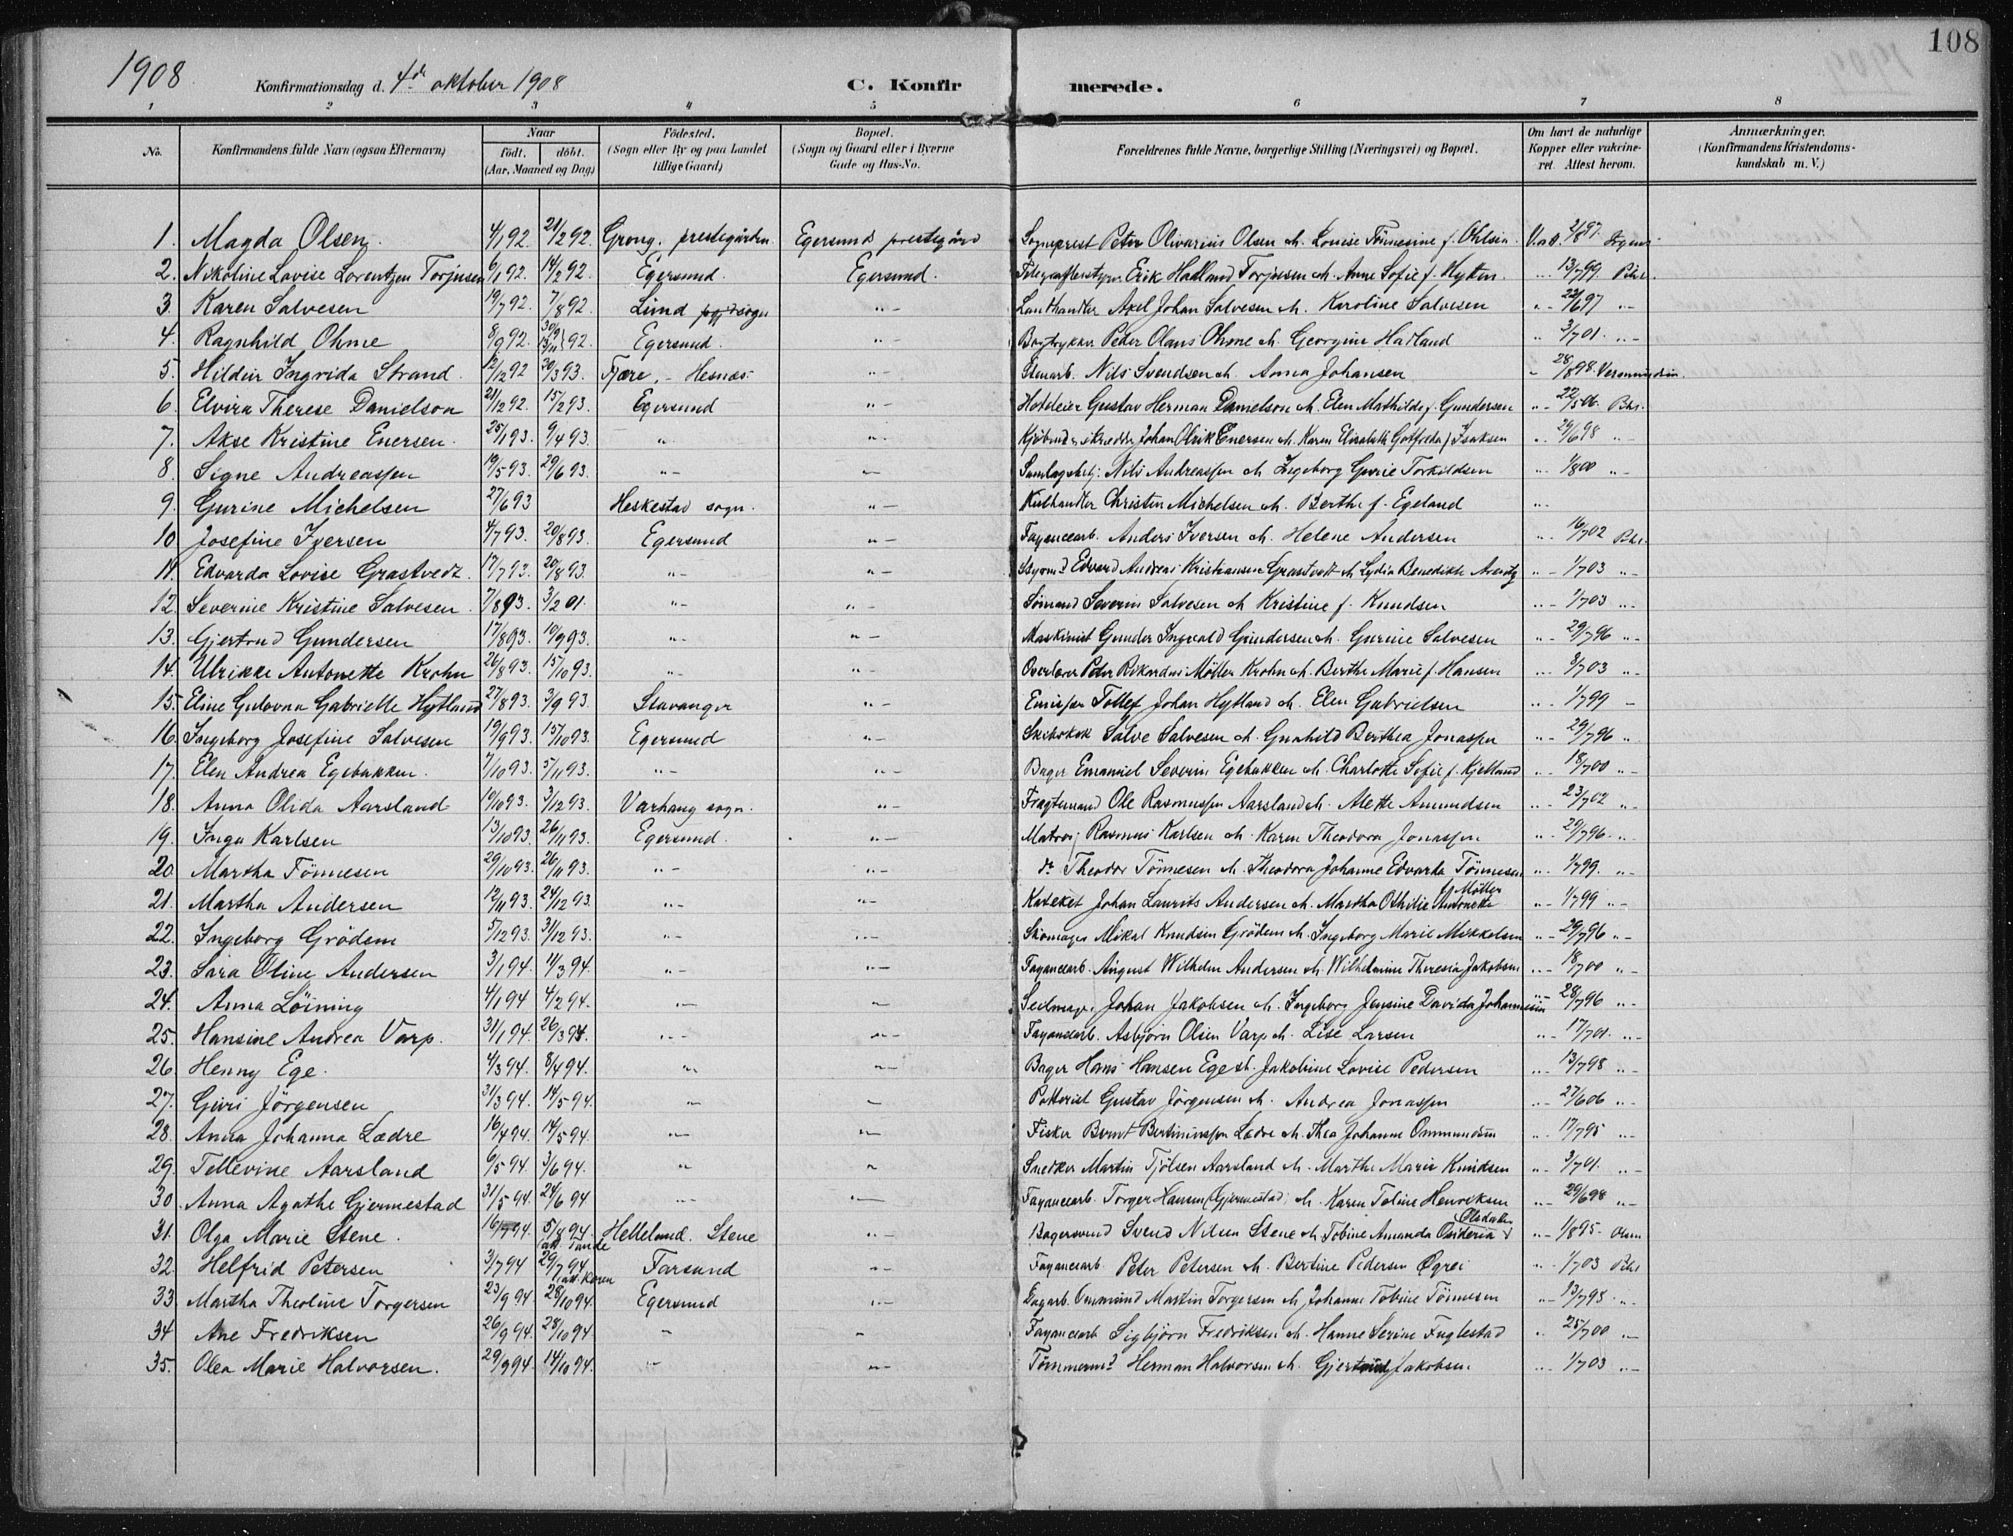 108
1908 Konfirmationsdag d. 4de oktober 1908 C. Konfirmerede.
1 2 3 4 5 6 7 8
No. Konfirmandens fulde Navn (ogsaa Efternavn) Naar født. døbt. (Aar, Maaned og Dag) Fødested. (Sogn eller By og paa Landet tillige Gaard) Bopæl. (Sogn og Gaard eller i Byerne Gade og Hus-No. Forældrenes fulde Navne, borgerlige Stilling (Næringsvei) og Bopæl. Om havt de naturlige Kopper eller vakcineret. Attest herom. Anmærkninger. (Konfirmandens Kristendomskundskab m. V.)
1. Magda Olsen. 4/1 92. 21/2 92. Grong, prestegården. Egersund prestegård Sogneprest Peter Olivarius Olsen & Lovise Tønnesine f. Ohlsen
2. Nikoline Lovise Lorentzen Torjusen 6/1 92. 14/2 92. Egersund. Egersund. Erik Hadland Torjusen & Anne Sofie f. 13/7 99
3. Karen Salvesen 19/7 92. 7/8 92. Lund sogn "- Landhandler Axel Johan Salvesen & Karoline Salvesen "- 22/6 97 "-
4. Ragnhild Ohme 8/9 92. 30/9 13/11 92. Egersund. "- Bogtrykker Peder Olaus Ohme & Georgine Hadland " 3/7 01. "-
5. Hildur Ingrida Strand. 12/12 92 20/3 93. Fjære, - Hesnes "- Stenarb. Nils Svendsen & Anna Johansen 28/8 98.
6. Elvira Therese Danielson 21/12 92. 15/2 93. Egersund "- Hoteleier Gustav Herman Danielson & Elen Mathilde f. Gundersen "- 22/5 06. Pihl.
7. Akse Kristine Enersen. 25/1 93. 9/4 93. "- "- skrædder Johan Olrik Enersen & Karen Elisabeth f. Isaksen " 24/6 98 "-
8. Signe Andreassen 19/5 93. 29/6 93. "- "- Nils Andreassen & Ingeborg Gurie Torkildsen "- 1/8 00 "-
9. Gurine Michelsen 27/6 93 Heskestad sogn. "- Kulhandler Christen Michelsen & Berthe f. Egeland "-
10 Josefine Iversen 4/7 93. 20/8 93. Egersund "- Fayancearb. Anders Iversen & Helene Andersen "- 16/7 02 Pihl.
11. Edvarda Lovise Grastvedt. 17/7 93. 20/8 93. "- "- Edvard Andreas Kristiansen Grastvedt & Lydia Benedikte "- 1/7 03 "-
12. Severine Kristine Salvesen. 7/8 93. 3/2 01. "- "- Sømand Severin Salvesen & Kristine f. Knudsen "- 1/7 03 "-
13. Gjertrud Gundersen 17/8 93. 10/9 93. "- "- Maskinist Gunder Ingvald Gundersen & Gurine Salvesen "- 29/7 96 "-
14. Ulrikke Antonette Krohn 26/8 93. 15/10 93. "- "- Overlærer Peder Rikardus Møller Krohn & Berthe Marie f. Hansen "- 3/7 03 "-
15. Eline Gulovna Gabrielle Hytland 27/8 93. 3/9 93. Stavanger "- Emissær Tollef Johan Hytland & Elen Gabrielsen "- 1/7 99 -
16. Ingeborg Josefine Salvesen 19/9 93. 15/10 93. Egersund "- Skibskok Salve Salvesen & Gunhild Berthea Jonassen "- 29/7 96 "-
17. Elen Andrea Egebakken. 7/10 93. 5/11 93. "- "- Bager Emanuel Severin Egebakken & Charlotte Sofie f. Kjelland "- 18/7 00 "-
18. Anna Olida Aarsland 19/10 93. 3/12 93. Varhaug sogn. "- Fragtemand Ole Rasmussen Aarsland & Alette Amundsen "- 23/7 02 "-
19. Inga Karlsen 13/10 93. 26/11 93. Egersund. "- Matros Rasmus Karlsen & Karen Theodora Jonassen "- 29/7 96. "-
20. Martha Tønnesen 29/10 93. 26/11 93. "- "- do Theodor Tønnesen & Theodora Johanne Edvarda Tønnesen "- 1/7 99. "-
21. Martha Andersen 12/11 93. 24/12 93. "- "- Kateket Johan Laurits Andersen & Martha Othilie Antonette f. Møller "- 1/7 99 "-
22. Ingeborg Grødem 5/12 93. 31/12 93. "- "- Skomager Mikal Knudsen Grødem & Ingeborg Marie Mikkelsen "- 29/7 96 "-
23. Sara Oline Andersen 3/1 94. 11/3 94. "- "- Fayancearb. August Wilhelm Andersen & Wilhelmine Theresia Jakobsen "- 18/7 00 "-
24. Anna Løining 4/1 94. 4/2 94. "- "- Seilmager Johan Jakobsen & Ingeborg Jensine Davida Johannessen "- 28/7 96 "-
25. Hansine Andrea Varp. 31/1 94. 26/3 94. "- "- Fayancearb. Asbjørn Olsen Varp & Lise Larsen "- 17/7 01. "-
26. Henny Ege. 4/3 94. 8/4 94. "- "- Bager Hans Hansen Ege & Jakobine Lovise Pedersen "- 13/7 98 "-
27. Guri Jørgensen 31/3 94. 14/5 94. "- "- Gustav Jørgensen & Andrea Jonassen "- 27/6 06 "-
28. Anna Johanna Lædre 16/4 94. 14/5 94. "- "- Fisker Bernt Bertinussen Lædre & Thea Johanne Ommundsen "- 17/7 95 "-
29. Tellevine Aarsland 6/5 94. 3/6 94. "- "- Snedker Martin Tjølsen Aarsland & Marthe Marie Knudsen "- 3/7 01. "-
30. Anna Agathe Gjermestad 31/5 94. 24/6 94 "- "- Fayancearb. Torger Hansen (Gjermestad) & Karen Toline Henriksen "- 29/6 98 "-
31. Olga Marie Stene. 16/7 94. 5/8 94. Helleland. Stene "- Bagersvend Svend Nilsen Stene & Tobine Amanda Osideria Olsdatter "- 1/8 95. Olsen
32. Helfrid Petersen 3/7 94 29/7 94 Farsund "- Fayancearb Peter Petersen & Bertine Pedersen Øgrei "- 1/7 03 Pihl
33. Martha Theoline Torgersen 23/9 94. 28/10 94. Egersund "- Dagarb. Ommund Martin Torgersen & Johanne Tobine Tønnesen "- 13/7 98. "-
34. Ane Fredriksen 26/9 94. 28/10 94. "- "- Fayancearb Sigbjørn Fredriksen & Hanne Serine Fuglestad " 25/7 00 "-
35. Olea Marie Halvorsen. 29/9 94. 14/10 94. "- "- Tømmermd Herman Halvorsen & Gjertrud Jakobsen "- 1/7 03 "-